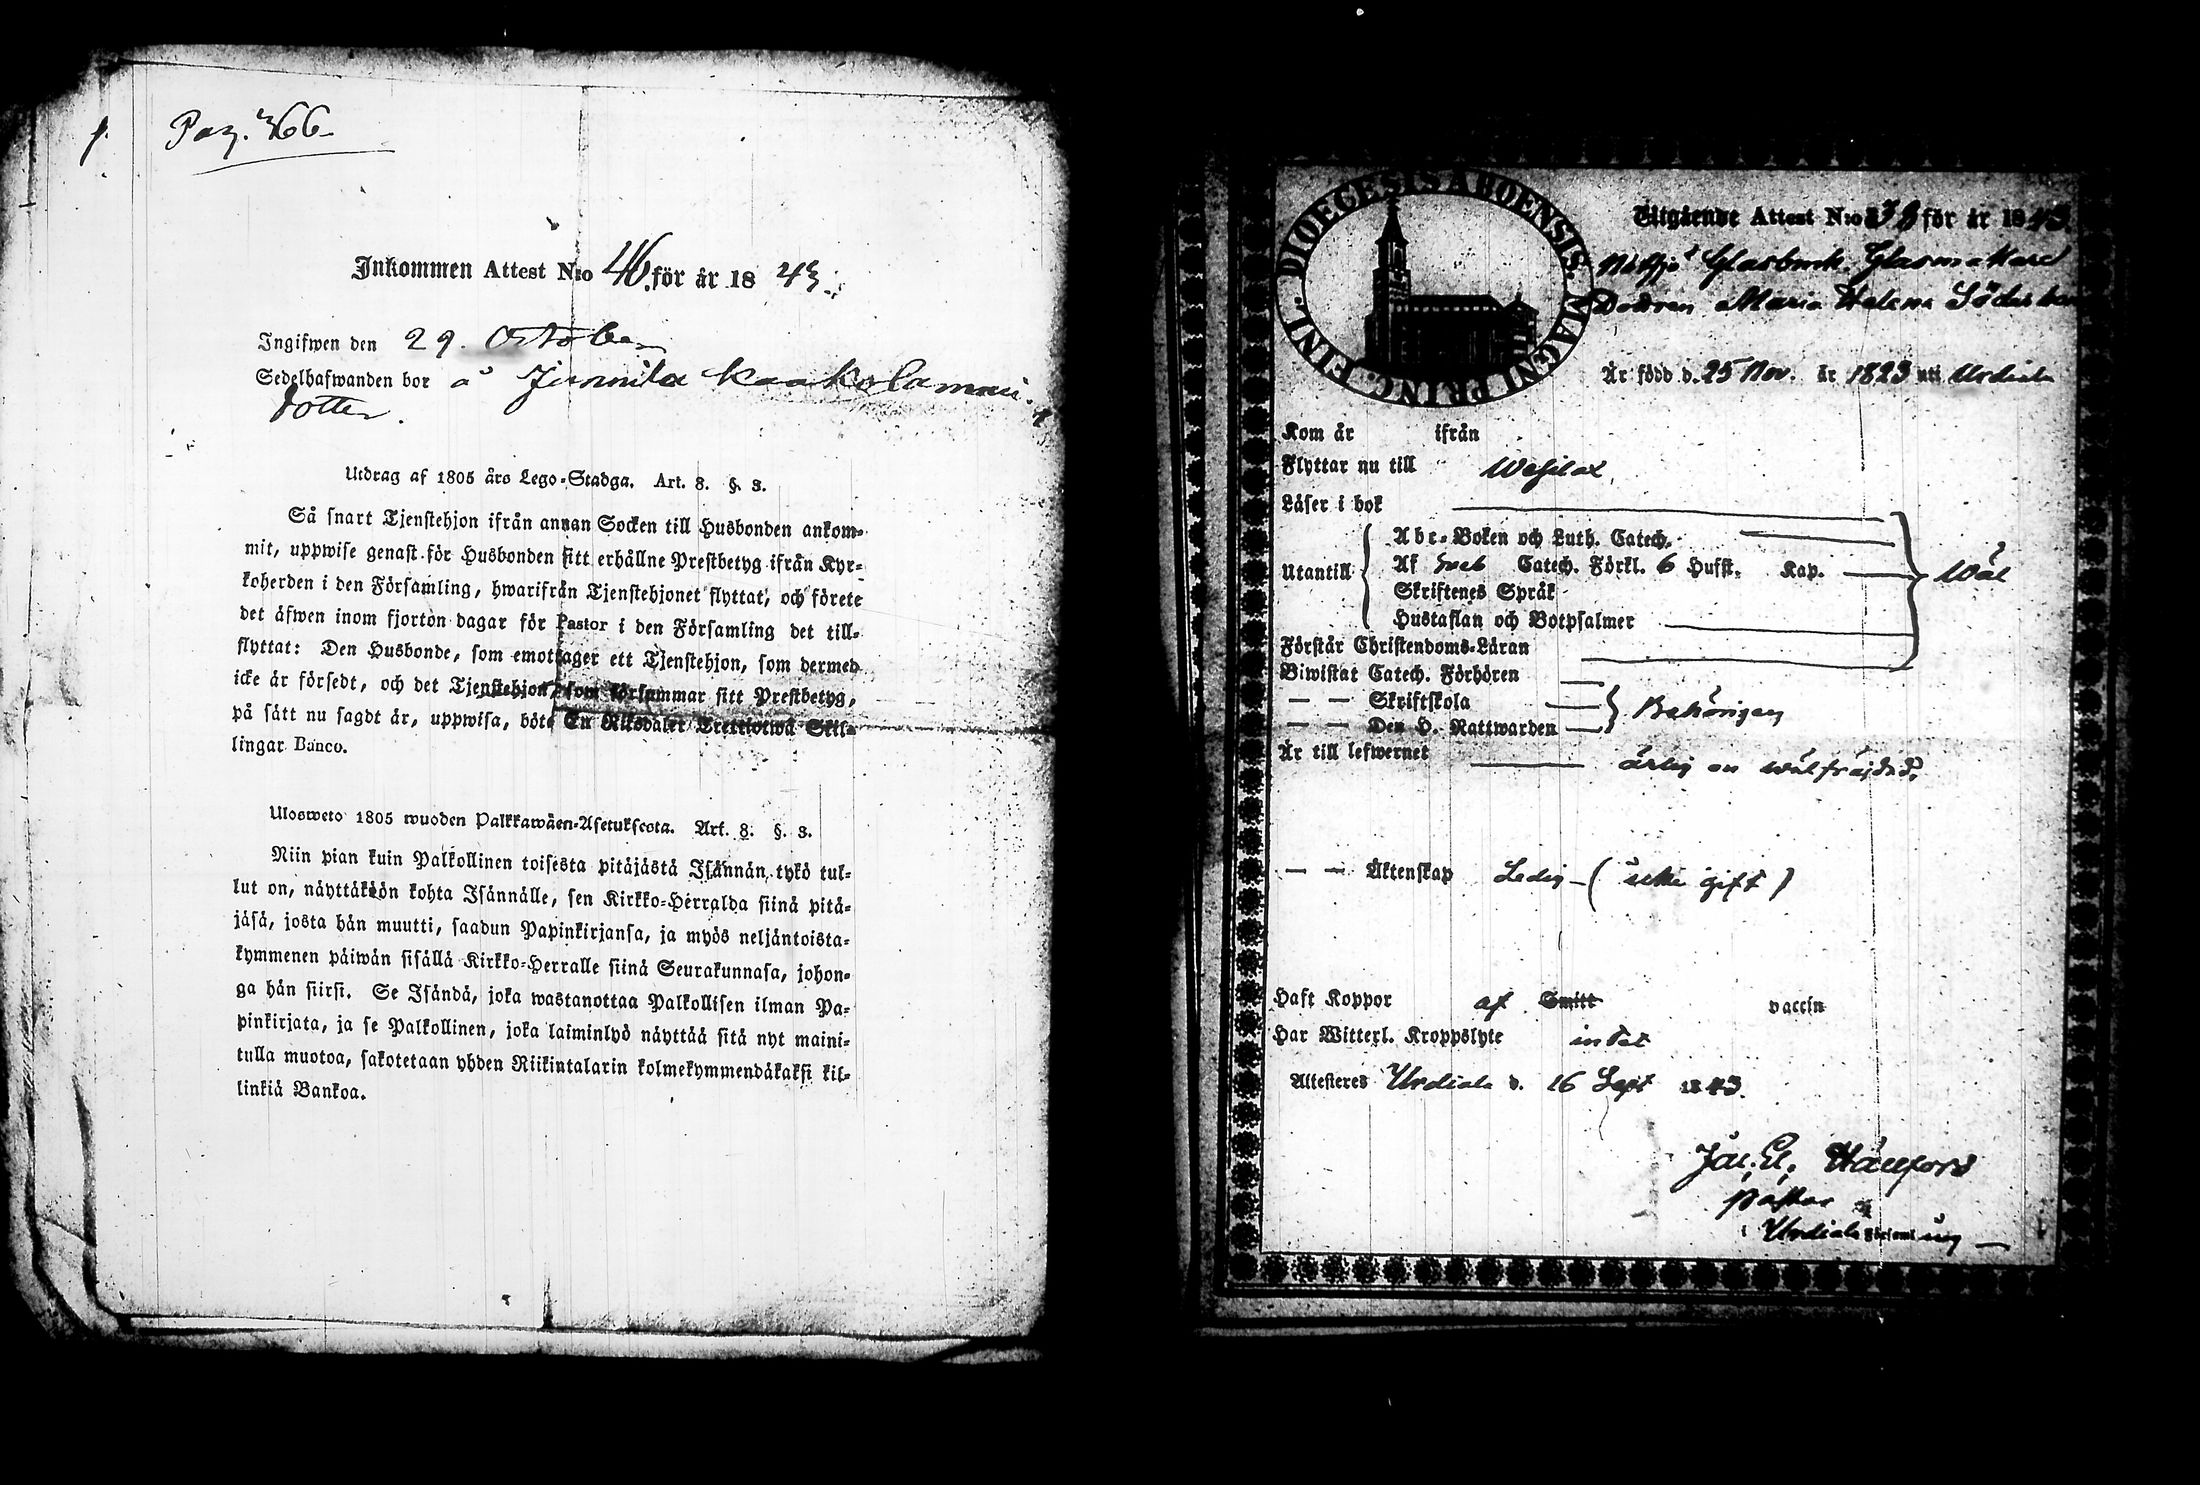 Pag. 366
Inkommen Attest N:o 46. för år 1843.
Ingifwen den 29. October
Sedelhafwanden bor å Junnila
dotter.
Utdrag af 1805 års Lego-Stadga. Art. 8. §. 3.
Så snart Tjenstehjon ifrån annan Socken till Husbonden ankom-
mit, uppwise genast för Husbonden sitt erhållne Prestbetyg ifrån Kyr-
koherden i den Församling, hwarifrån Tjenstehjonet flyttat, och förete
det äfwen inom fjorton dagar för Pastor i den Församling det till-
flyttat: Den Husbonde, som emottager ett Tjenstehjon, som dermed
icke är försedt, och det Tjenstehjon, som försummar sitt Prestbetyg,
på sätt nu sagdt är, uppwisa, böte En Riksdaler Trettiotwå Skil-
lingar Banco.
Ulosweto 1805 wuoden Palkkawäen-Asetuksesta. Art. 8. §. 3.
Niin pian kuin Palkollinen toisesta pitäjästä Isännän tykö tul-
lut on, näyttäköön kohta Isännälle, sen Kirkko-Herralda siinä pitä-
jäsä, josta hän muutti, saadun Papinkirjansa, ja myös neljäntoista-
kymmenen päiwän sisällä Kirkko-Herralle siinä Seurakunnasa, johon-
ga hän siirsi. Se Isändä, joka wastanottaa Palkollisen ilman Pa-
pinkirjata, ja se Palkollinen, joka laiminlyö näyttää sitä nyt maini-
tulla muotoa, sakotetaan yhden Riikintalarin kolmekymmendäkaksi kil-
linkiä Bankoa.
DIOECESIS ABOENSIS. MAGNI PRINC. FINL.
Utgående Attest N:o för år 1843.
Glasbruk. Glasmakare
Dottren Maria Helena
Är född d. 25 Nov. år 1823 uti Urdiala
Kom år ifrån
Flyttar nu till Wesilax
Läser i bok
Utantill Abc-Boken och Luth. Catech.
Af Sveb Catech. Förkl. 6 Hufst. Kap. Wäl
Skriftenes Språk
Hustaflan och Botpsalmer
Förstår Christendoms-Läran
Biwistat Catech. Förhören
— — Skriftskola Behörigen
— — Den H. Nattwarden
Är till lefwernet ärlig och wälfräjdad.
— — Äktenskap Ledig – (icke gift)
Haft Koppor af Smitt vaccin
Har Witterl. Kroppslyte intet
Attesteres Urdiala d. 16 Sept 1843.
Pastor
i Urdiala Församling